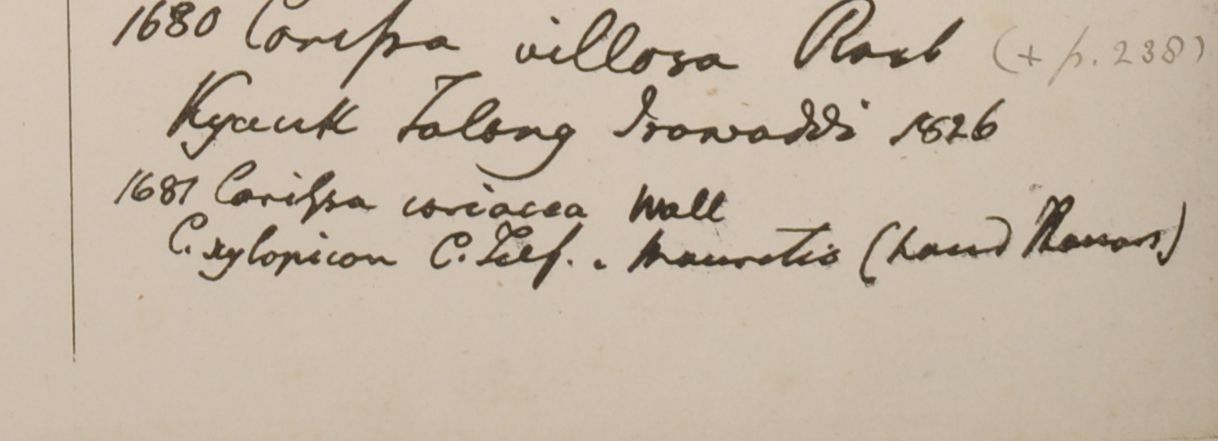 1680 Carissa villosa Roxb (+ p. 238)
Kyauk Talong Irawaddi 1826
1681 Carissa coriacea Wall
C. xylopicon C. Telf. . Mauritio (